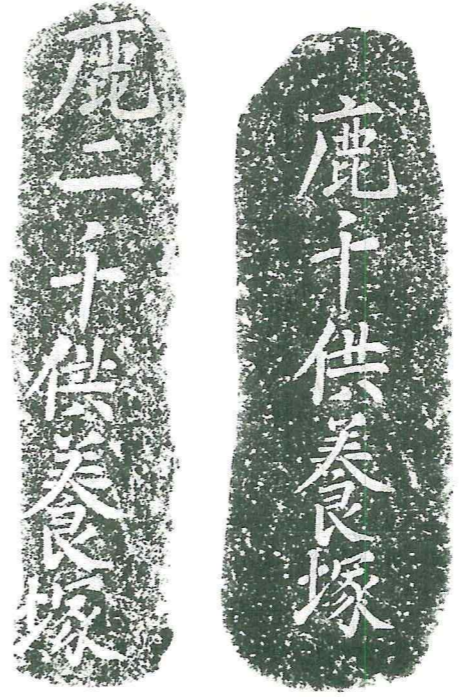 鹿千供養塚
鹿二千供養塚